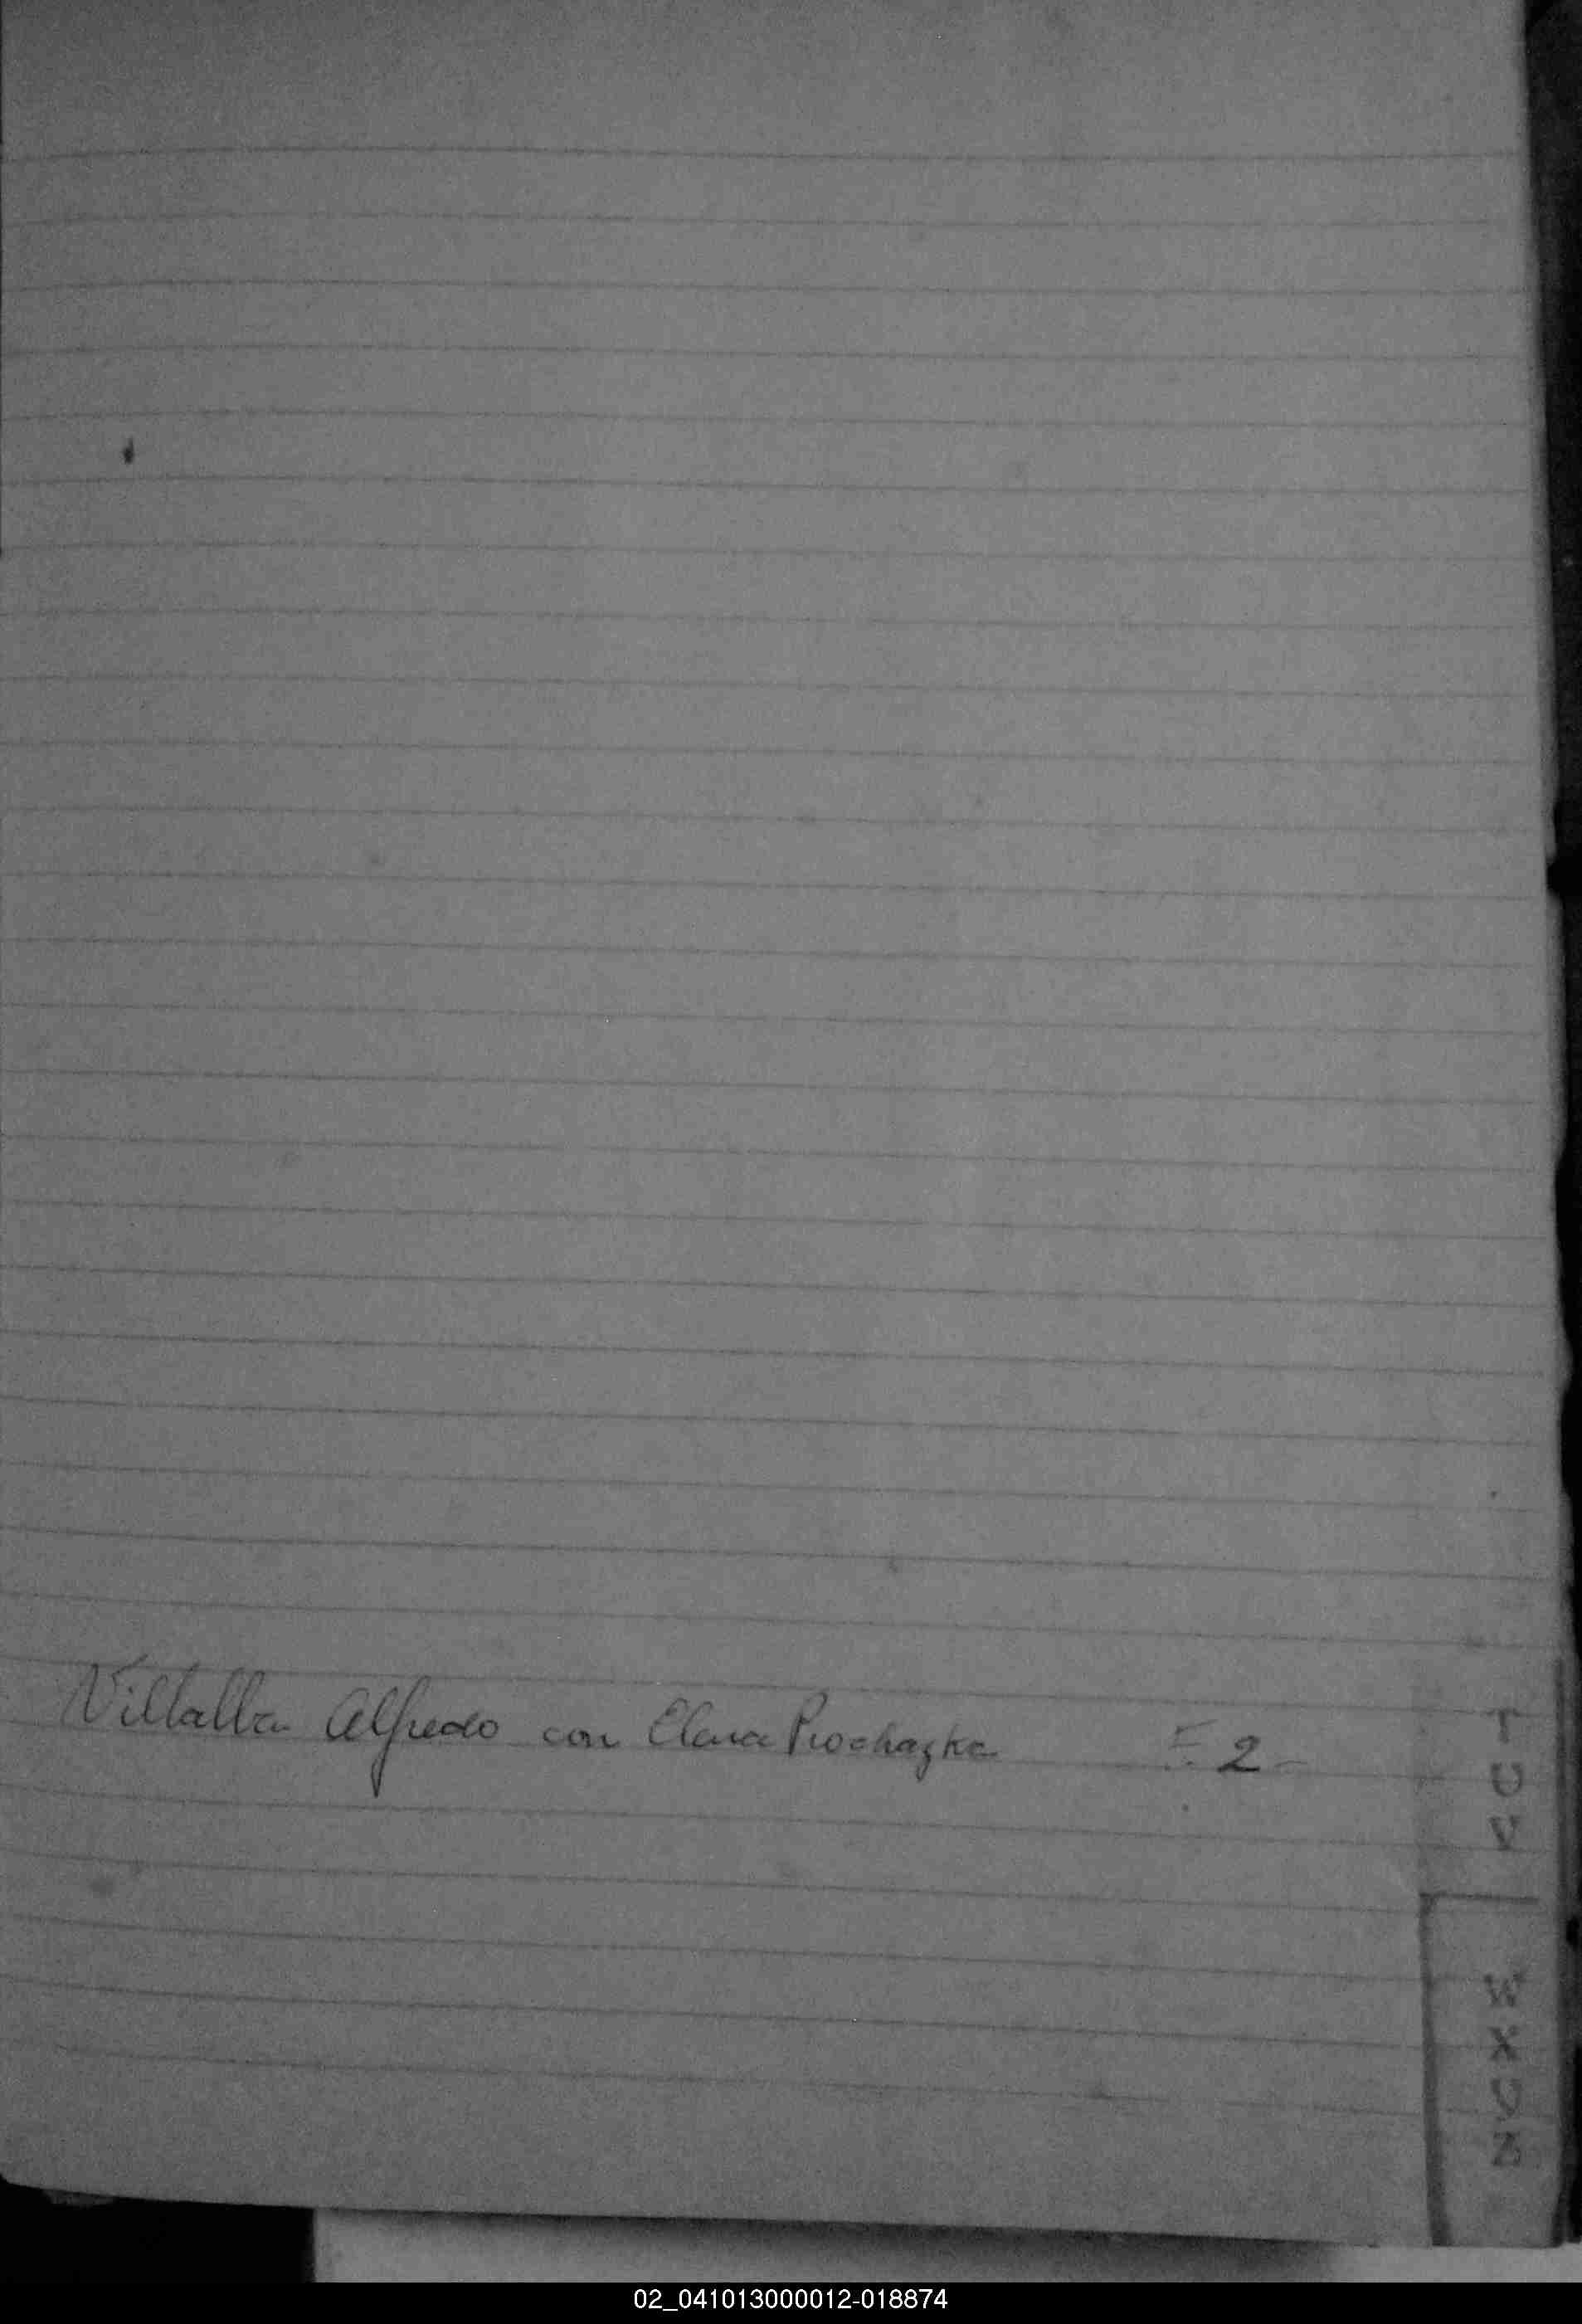 Villalba Alfredo con Elena Prochazka F. 2
T
U
V
W
X
Y
Z
02_041013000012-018874